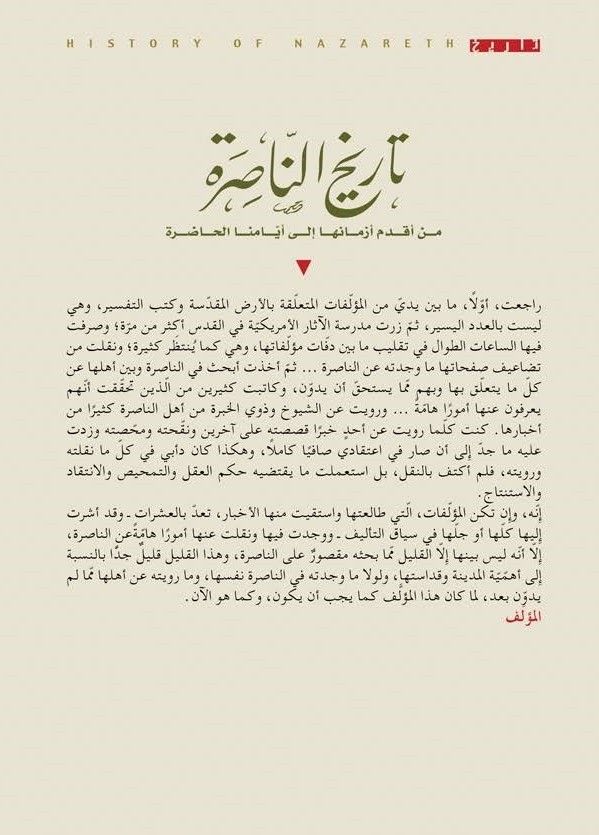 HISTORY OF NAZARETH تاريخ
تاريخ النّاصِرَة
من أقدم أزمانها إلى أيّامنا الحاضرة
راجعت، أوّلًا، ما بين يديّ من المؤلّفات المتعلّقة بالأرض المقدّسة وكتب التفسير، وهي
ليست بالعدد اليسير، ثمّ زرت مدرسة الآثار الأمريكيّة في القدس أكثر من مرّة؛ وصرفت
فيها الساعات الطوال في تقليب ما بين دفّات مؤلّفاتها، وهي كما يُنتظَر كثيرة؛ ونقلت من
تضاعيف صفحاتها ما وجدته عن الناصرة ... ثمّ أخذت أبحث في الناصرة وبين أهلها عن
كلّ ما يتعلّق بها وبهم ممّا يستحقّ أن يدوّن، وكاتبت كثيرين من الّذين تحقّقت أنّهم
يعرفون عنها أمورًا هامّة ... ورويت عن الشيوخ وذوي الخبرة من أهل الناصرة كثيرًا من
أخبارها. كنت كلّما رويت عن أحدٍ خبرًا قصصته على آخرين ونقّحته ومحّصته وزدت
عليه ما جدّ إلى أن صار في اعتقادي صافيًا كاملًا، وهكذا كان دأبي في كلّ ما نقلته
ورويته، فلم أكتف بالنقل، بل استعملت ما يقتضيه حكم العقل والتمحيص والانتقاد
والاستنتاج.
إنّه، وإن تكن المؤلّفات، الّتي طالعتها واستقيت منها الأخبار، تعدّ بالعشرات ـ وقد أشرت
إليها كلّها أو جلّها في سياق التأليف ـ ووجدت فيها ونقلت عنها أمورًا هامّةً عن الناصرة،
إلّا أنّه ليس بينها إلّا القليل ممّا بحثه مقصورٌ على الناصرة، وهذا القليل قليلٌ جدًّا بالنسبة
إلى أهمّيّة المدينة وقداستها، ولولا ما وجدته في الناصرة نفسها، وما رويته عن أهلها ممّا لم
يدوّن بعد، لما كان هذا المؤلّف كما يجب أن يكون، وكما هو الآن.
المؤلف